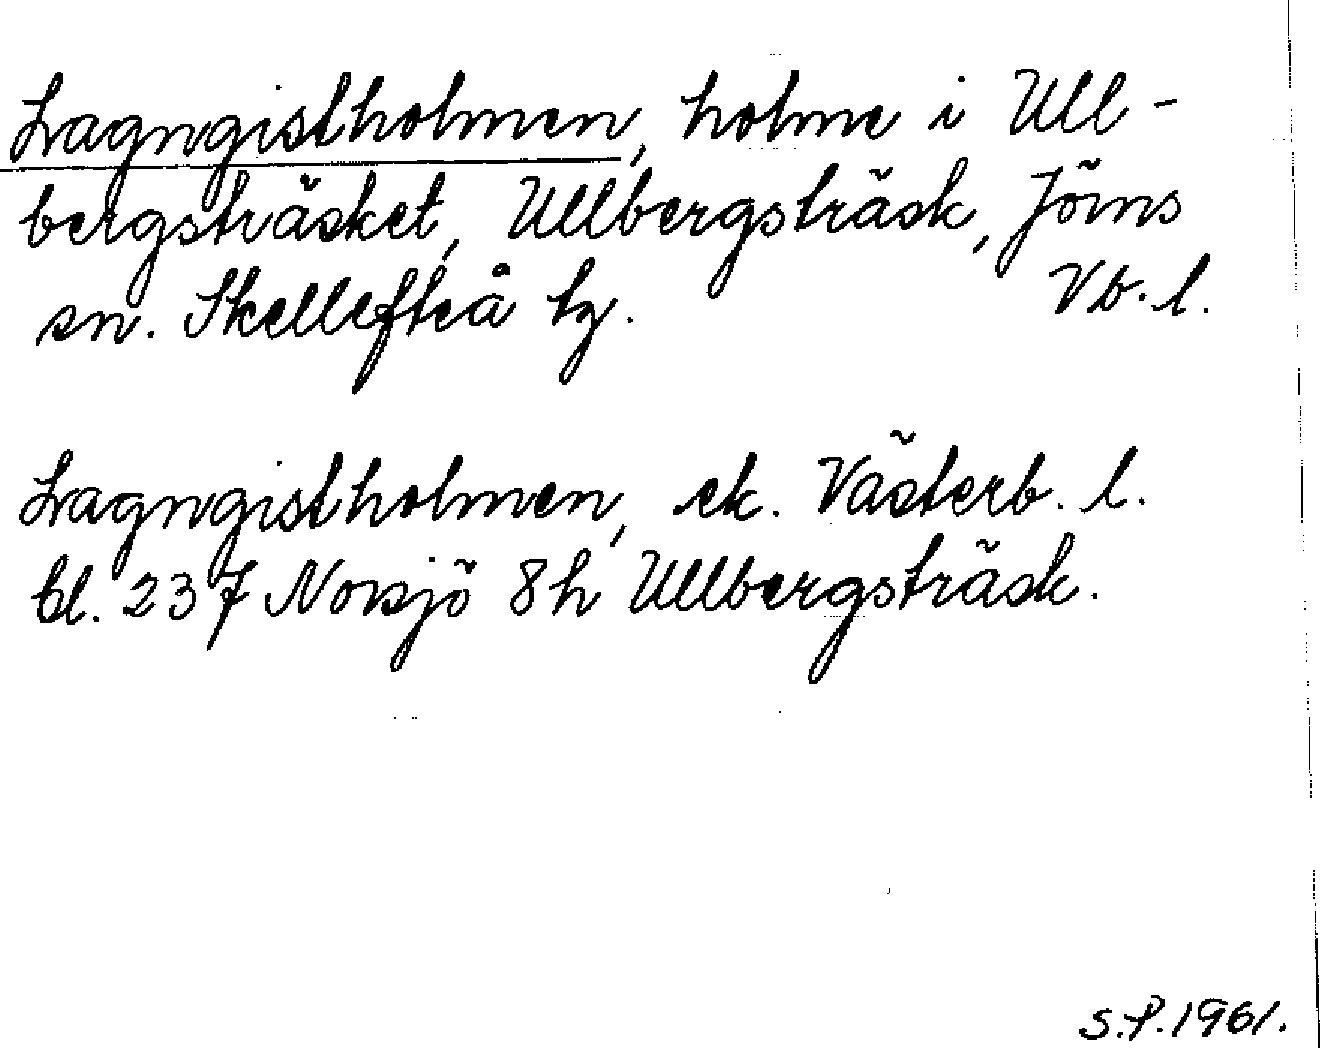 Lagngistholmen, holme i Ull-
bergsträsket, Ullbergsträsk, Jörns
sn. Skellefteå tg. Vb. l.
Lagngistholmen, ek. Västerb. l.
bl. 237 Norsjö 8h Ullbergsträsk.
S.P. 1961.